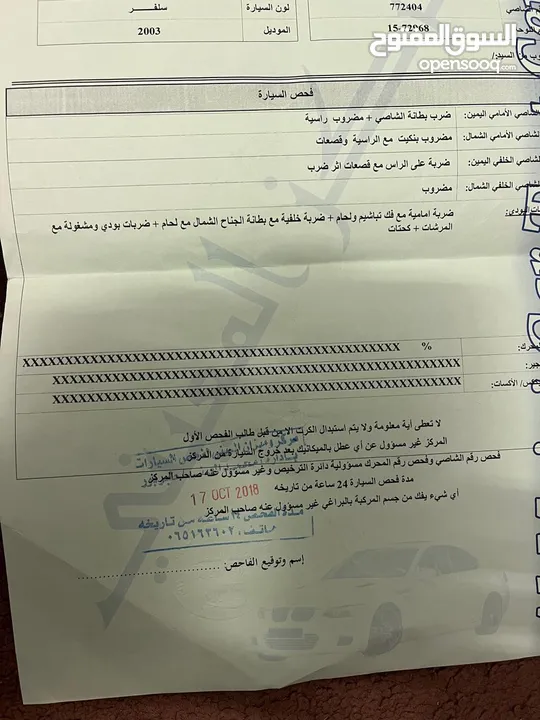 الشاصي 772404 لون السيارة سلفـــر
15-72968 الموديل 2003
السوق المفتوح
opensooq.com
من السيد/
فحص السيارة
الشاصي الأمامي اليمين: ضرب بطانة الشاصي + مضروب راسية
الشاصي الأمامي الشمال: مضروب بنكيت مع الراسية وقصعات
الشاصي الخلفي اليمين: ضربة على الراس مع قصعات اثر ضرب
الشاصي الخلفي الشمال: مضروب
ضربة امامية مع فك تباشيم ولحام + ضربة خلفية مع بطانة الجناح الشمال مع لحام + ضربات بودي ومشغولة مع
المرشات + كحتات
% XXXXXXXXXXXXXXXXXXXXXXXXXXXXXXXXXXXXXXXXXXXX
XXXXXXXXXXXXXXXXXXXXXXXXXXXXXXXXXXXXXXXXXXXXXXXX
الأكسات: XXXXXXXXXXXXXXXXXXXXXXXXXXXXXXXXXXXXXXXXXXXXXXXX
لا تعطى أية معلومة ولا يتم استبدال الكرت الا من قبل طالب الفحص الأول
المركز غير مسؤول عن أي عطل بالميكانيك بعد خروج السيارة من المركز
فحص رقم الشاصي وفحص رقم المحرك مسؤولية دائرة الترخيص وغير مسؤول عنه صاحب المركز
مدة فحص السيارة 24 ساعة من تاريخه
17 OCT 2018
أي شيء يفك من جسم المركبة بالبراغي غير مسؤول عنه صاحب المركز
مدة الفحص ٢٤ ساعة من تاريخه
هاتف: ٠٦٥١٦٣٦٠٢
إسم وتوقيع الفاحص: ........................